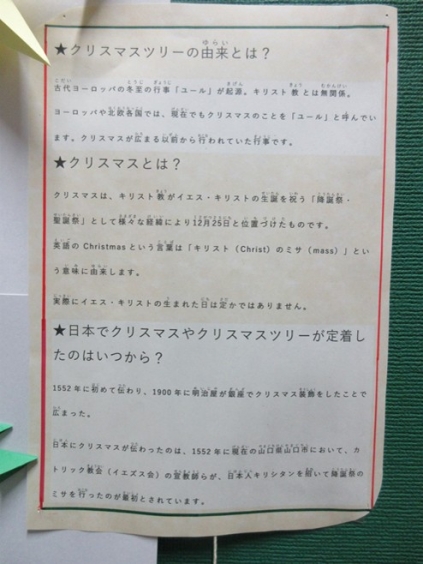 ★クリスマスツリーの由来とは？
古代ヨーロッパの冬至の行事「ユール」が起源。キリスト教とは無関係。
ヨーロッパや北欧各国では、現在でもクリスマスのことを「ユール」と呼んでい
ます。クリスマスが広まる以前から行われていた行事です。
★クリスマスとは？
クリスマスは、キリスト教がイエス・キリストの生誕を祝う「降誕祭・
聖誕祭」として様々な経緯により12月25日と位置づけたものです。
英語の Christmas という言葉は「キリスト（Christ）のミサ（mass）」とい
う意味に由来します。
実際にイエス・キリストの生まれた日は定かではありません。
★日本でクリスマスやクリスマスツリーが定着し
たのはいつから？
1552 年に初めて伝わり、1900 年に明治屋が銀座でクリスマス装飾をしたことで
広まった。
日本にクリスマスが伝わったのは、1552 年に現在の山口県山口市において、カ
トリック教会（イエズス会）の宣教師らが、日本人キリシタンを招いて降誕祭の
ミサを行ったのが最初とされています。